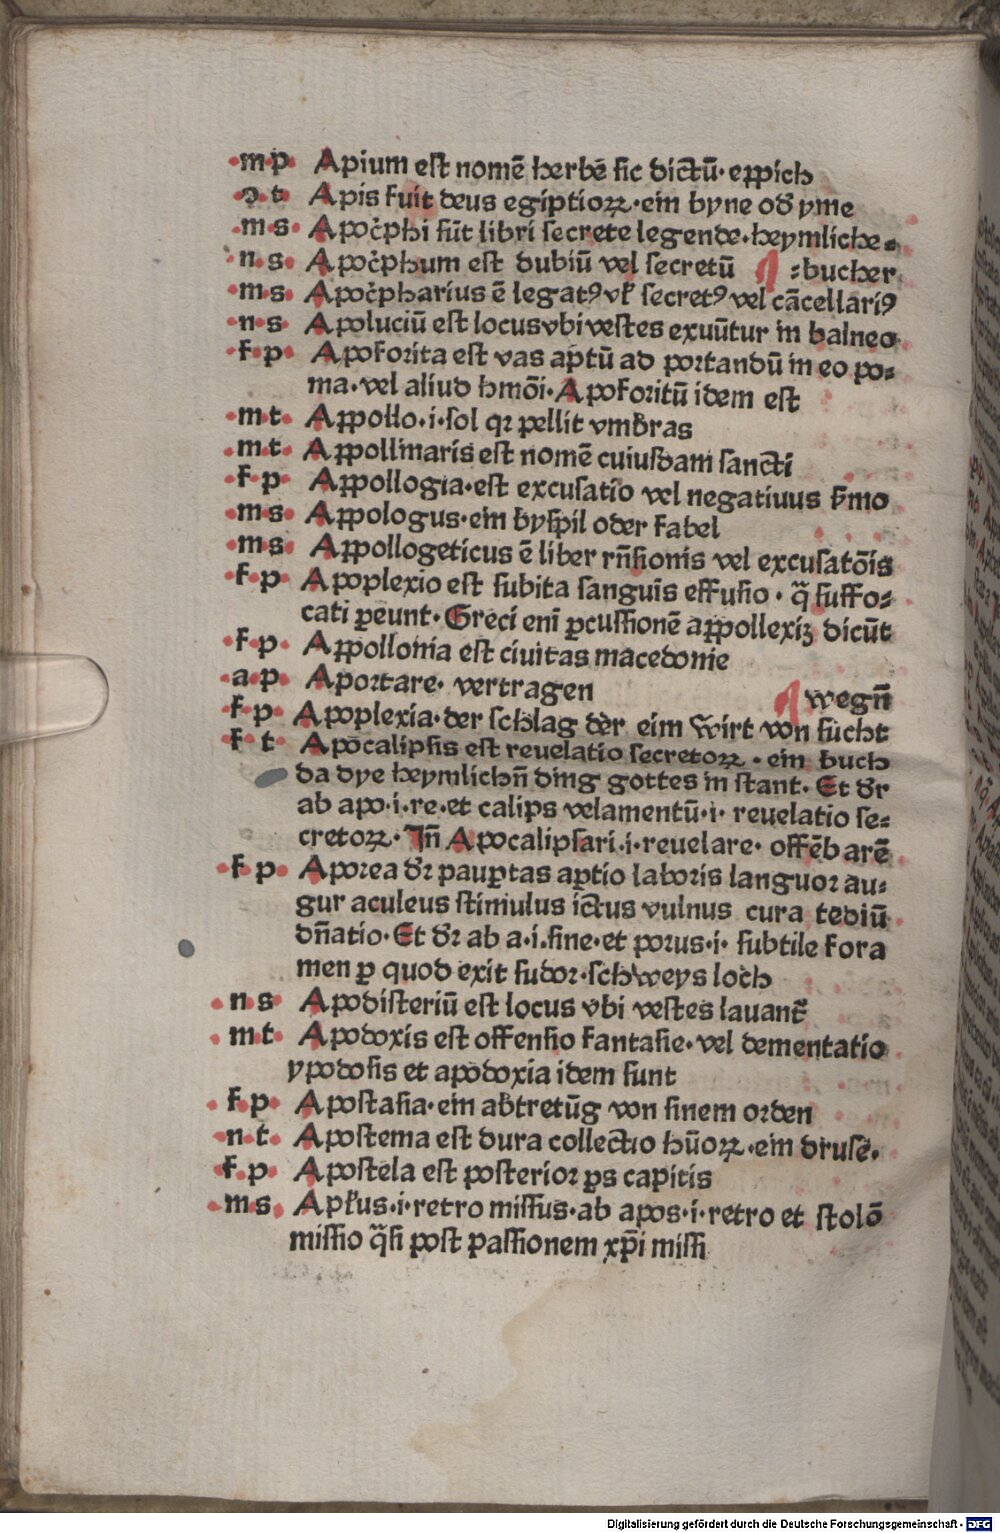 m p Apium est nomē herbē sic dictū· eppich
ꝯ t Apis fuit deus egiptioꝝ·ein byne od̄ yme
m s Apoc̄phi sūt libri secrete legende·heymliche⸗
n s Apoc̄phum est dubiū vel secretū ¶ ⸗bucher
m s Apoc̄pharius ē legatꝯ vł secretꝯ vel cācellariꝯ
n s Apoluciū est locus vbi vestes exuūtur in balneo
f p Apoforita est vas aptū ad portandū in eo po⸗
ma·vel aliud hmōi·Apoforitū idem est
m t Appollo·i·sol qꝛ pellit vmbras
m t Appollinaris est nomē cuiusdam sancti
f p Appollogia·est excusatio vel negatiuus s̄mo
m s Appologus·ein byspil oder fabel
m s Appollogeticus ē liber rn̄sionis vel excusatōis
f p Apoplexio est subita sanguīs effusio · q̄ suffo⸗
cati ꝑeunt·Greci enī ꝑcussionē appollexiꝫ dicūt
f p Appollonia est ciuitas macedonie
a p Aportare· vertragen ¶ wegn̄
f p Apoplexia·der schlag der eim wirt von sucht
f t Apocalipsis est reuelatio secretoꝝ · ein buch
da dye heymlichn̄ ding gottes in stant· Et dr̄
ab apo·i·re·et calips velamentū·i· reuelatio se⸗
cretoꝝ· Jn̄ Apocalipsari·i·reuelare· offēbarē
f p Aporea dr̄ pauꝑtas aptio laboris languor au⸗
gur aculeus stimulus ictus vulnus cura tediū
dn̄atio·Et dr̄ ab a·i·sine·et porus·i· subtile fora
men ꝑ quod exit sudor·schweys loch
n s Apodisteriū est locus vbi vestes lauant᷑
m t Apodoxis est offensio fantasie·vel dementatio
ypodosis et apodoxia idem sunt
f p Apostasia·ein abtretūg von sinem orden
n t Apostema est dura collectio hūoꝝ·ein druse·
f p Apostela est posterior ꝑs capitis
m s Apłus·i·retro missus·ab apos·i·retro et stolō
missio q̄si post passionem xp̄i missi
Digitalisierung gefördert durch die Deutsche Forschungsgemeinschaft - DFG